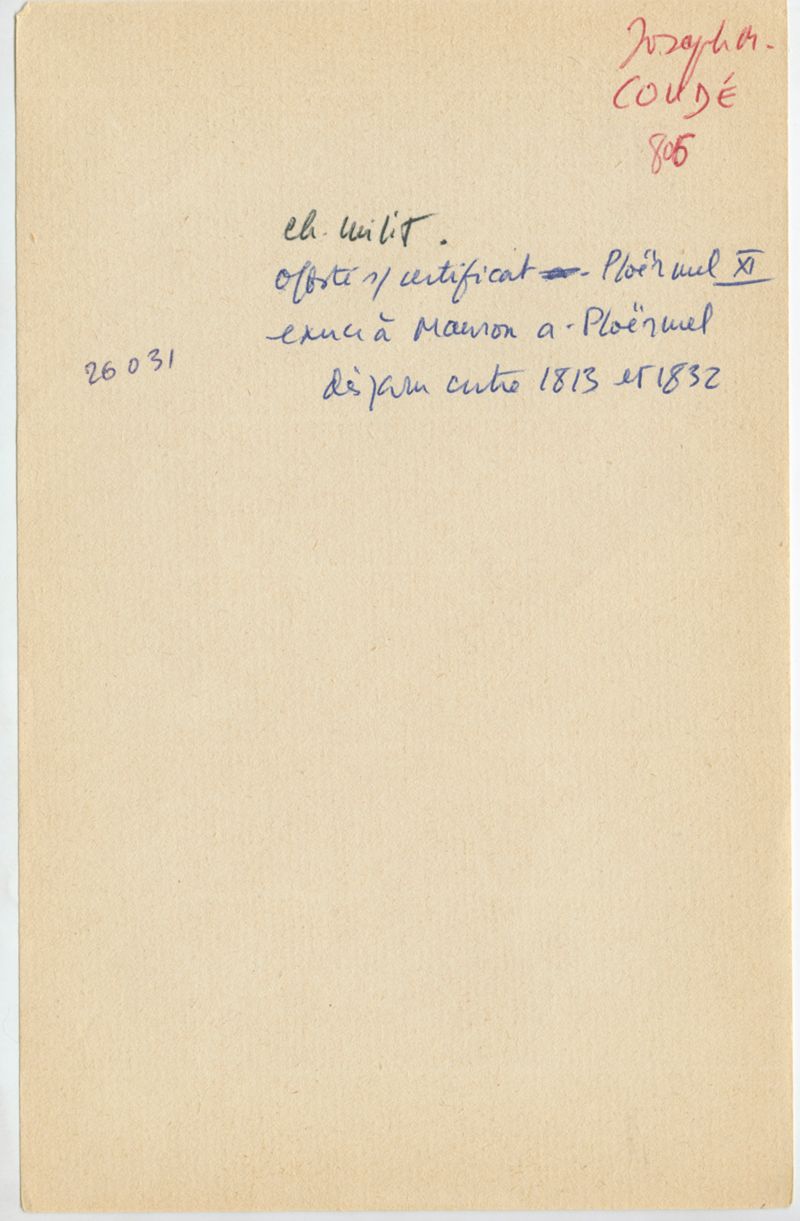 Joseph M.
COUDÉ
806
ch. milit.
offsté s/ certificat - Ploërmel XI
exerce à Mauron a - Ploërmel
26031
disparu entre 1813 et 1832